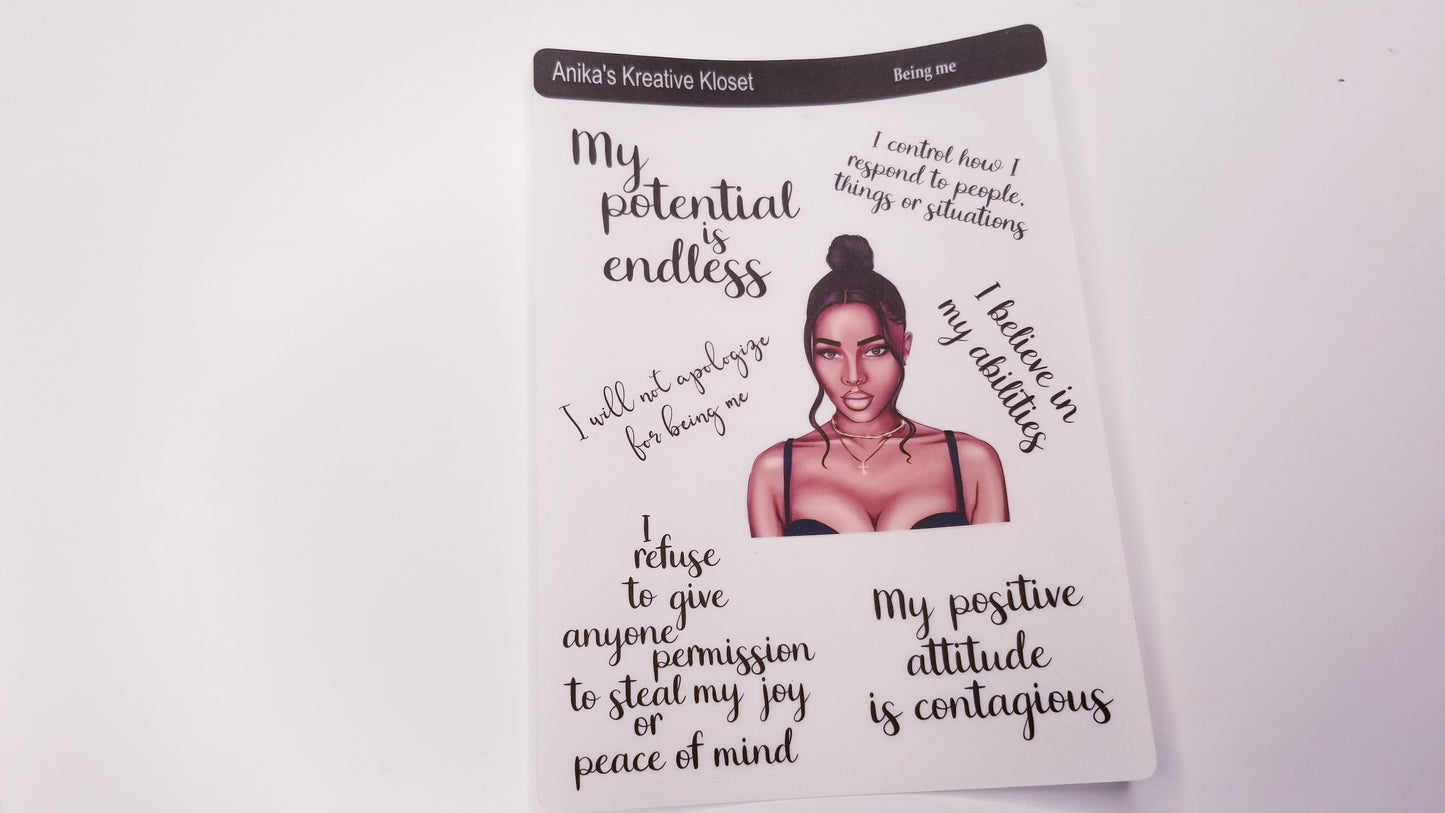 Anika's Kreative Kloset
Being me
My
potential
is
endless
I control how I
respond to people,
things or situations
I believe in
my abilities
I will not apologize
for being me
I
refuse
to give
anyone
permission
to steal my joy
or
peace of mind
My positive
attitude
is contagious